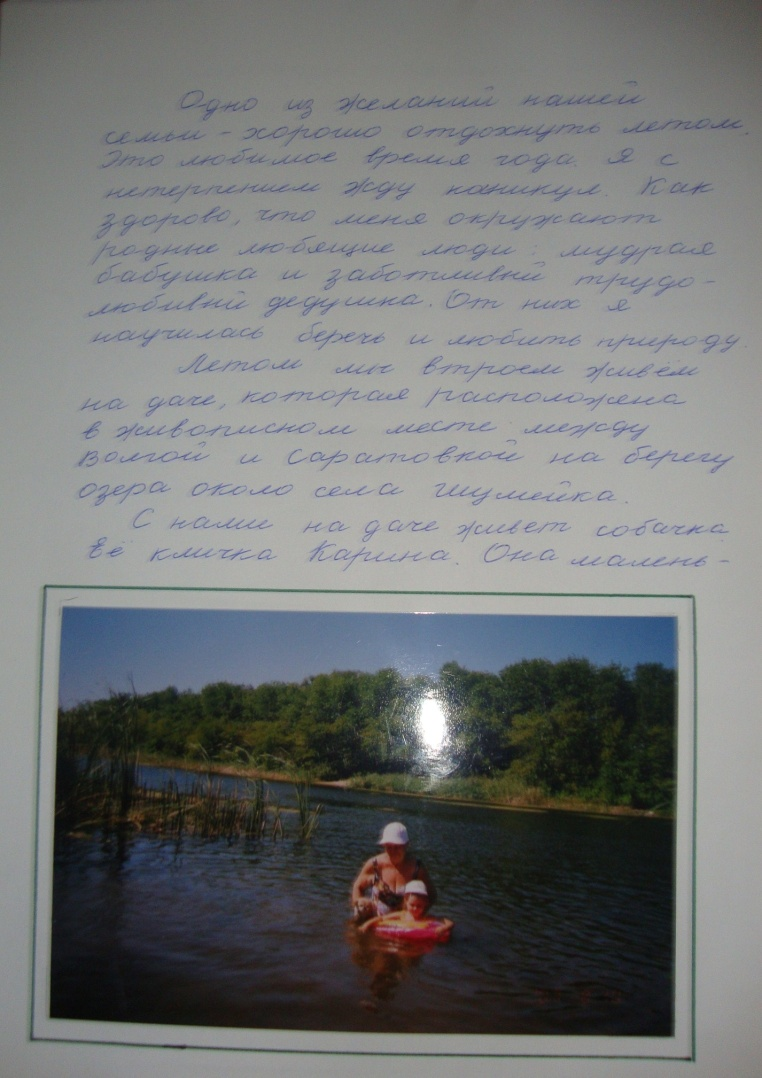 Одно из желаний нашей
семьи - хорошо отдохнуть летом.
Это любимое время года. Я с
нетерпением жду каникул. Как
здорово, что меня окружают
родные любящие люди: мудрая
бабушка и заботливый трудо-
любивый дедушка. От них я
научилась беречь и любить природу.
Летом мы втроем живём
на даче, которая расположена
в живописном месте между
Волгой и Саратовкой на берегу
озера около села Шумейка.
С нами на даче живет собачка.
Её кличка Карина. Она малень-